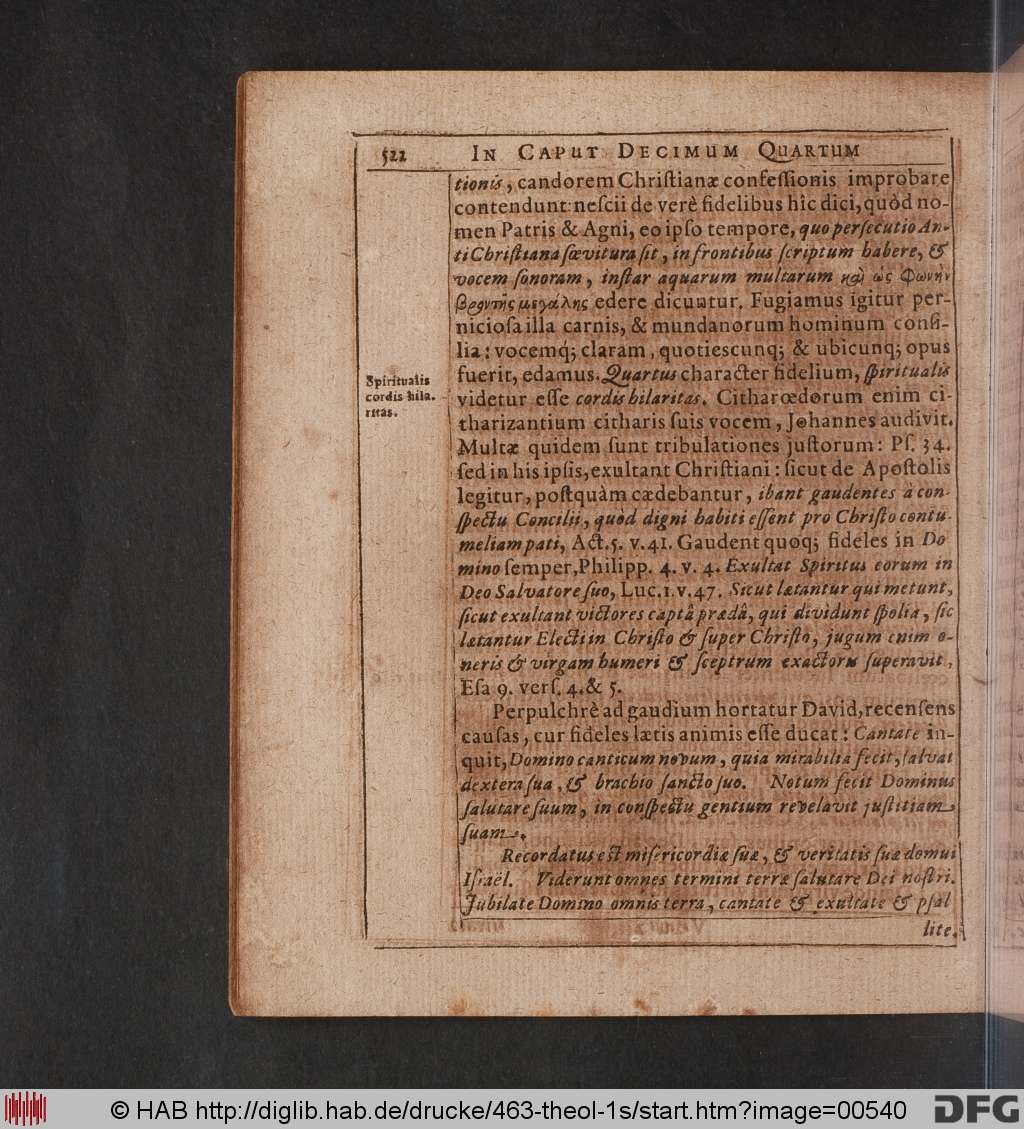 522 IN CAPUT DECIMUM QUARTUM
tionis, candorem Christianæ confessionis improbare
contendunt: nescii de verè fidelibus hîc dici, quòd no-
men Patris & Agni, eo ipso tempore, quo persecutio An-
ti Christiana sævitura sit, in frontibus scriptum habere, &
vocem sonoram, instar aquarum multarum καὶ ὡς φωνὴν
βροντῆς μεγάλης edere dicuntur. Fugiamus igitur per-
niciosa illa carnis, & mundanorum hominum consi-
lia: vocemq́; claram, quotiescunq; & ubicunq; opus
fuerit, edamus. Quartus character fidelium, spiritualis
Spiritualis
cordis hila-
ritas.
videtur esse cordis hilaritas. Citharœdorum enim ci-
tharizantium citharis suis vocem, Johannes audivit.
Multæ quidem sunt tribulationes justorum: Ps. 34.
sed in his ipsis, exultant Christiani: sicut de Apostolis
legitur, postquàm cædebantur, ibant gaudentes à con-
spectu Concilii, quòd digni habiti essent pro Christo contu-
meliam pati, Act. 5. v. 41. Gaudent quoq; fideles in Do
mino semper, Philipp. 4. v. 4. Exultat Spiritus eorum in
Deo Salvatore suo, Luc. 1. v. 47. Sicut lætantur qui metunt,
sicut exultant victores captâ prædâ, qui dividunt spolia, sic
lætantur Electi in Christo & super Christo, jugum enim o-
neris & virgam humeri & sceptrum exactoru superavit,
Esa 9. vers. 4. & 5.
Perpulchrè ad gaudium hortatur David, recensens
causas, cur fideles lætis animis esse ducat: Cantate in-
quit, Domino canticum novum, quia mirabilia fecit, salvat
dextera sua, & brachio sancto suo. Notum fecit Dominus
salutare suum, in conspectu gentium revelavit justitiam
suam.
Recordatus est misericordiæ suæ, & veritatis suæ domui
Israël. Viderunt omnes termini terræ salutare Dei nostri.
Jubilate Domino omnis terra, cantate & exultate & psal
lite.
© HAB http://diglib.hab.de/drucke/463-theol-1s/start.htm?image=00540
DFG